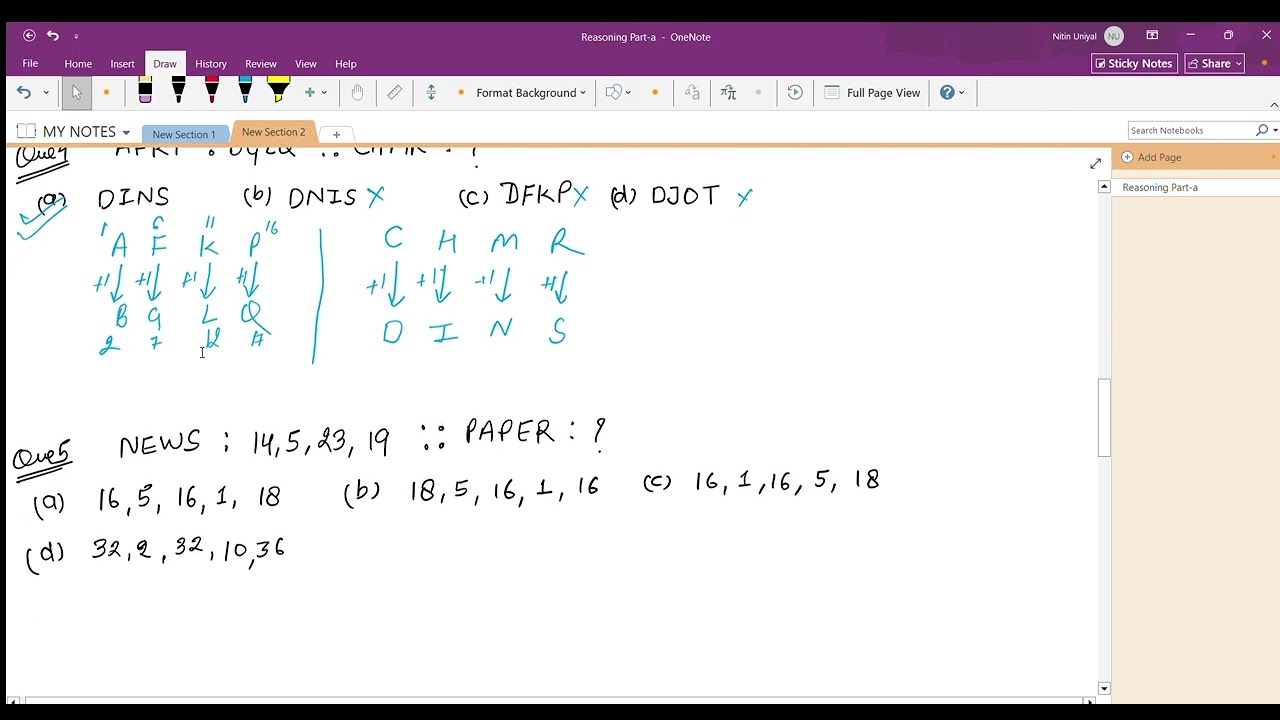 Reasoning Part-a - OneNote
Nitin Uniyal NU
File Home Insert Draw History Review View Help
Sticky Notes Share
Format Background Full Page View
MY NOTES New Section 1 New Section 2 +
Search Notebooks
Add Page
Reasoning Part-a
(a) DINS (b) DNIS X (c) DFKP X (d) DJOT X
1 6 11 16
A F K P C H M R
+1 +1 +1 +1 +1 +1 +1 +1
B G L Q D I N S
2 7 12 17
Que5 NEWS : 14,5,23,19 :: PAPER : ?
(a) 16,5,16,1,18 (b) 18,5,16,1,16 (c) 16,1,16,5,18
(d) 32,2,32,10,36